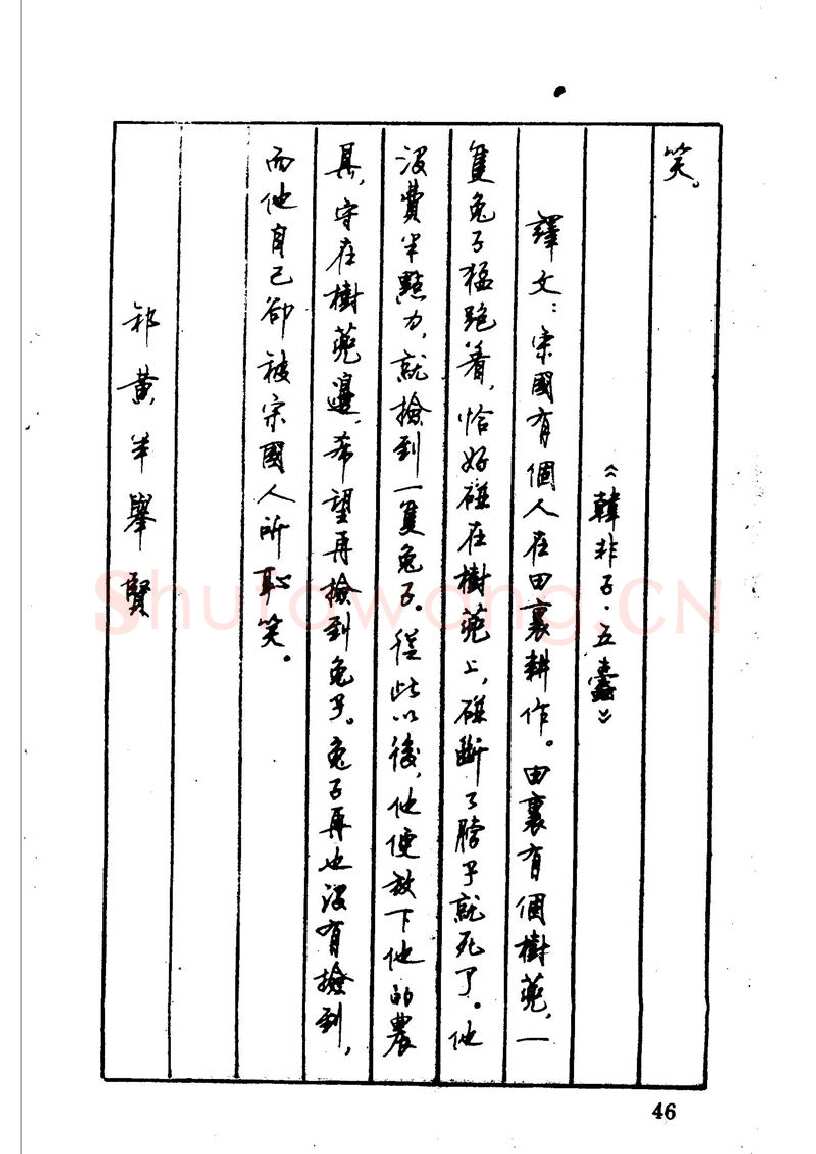 笑。
《韓非子·五蠹》
譯文：宋國有個人在田裏耕作。田裏有個樹蔸，一
隻兔子猛跑着，恰好碰在樹蔸上，碰斷了脖子就死了。他
沒費半點力，就撿到一隻兔子。從此以後，他便放下他的農
具，守在樹蔸邊，希望再撿到兔子。兔子再也沒有撿到，
而他自己卻被宋國人所恥笑。
祁黄羊舉賢
46
Shufawang.CN